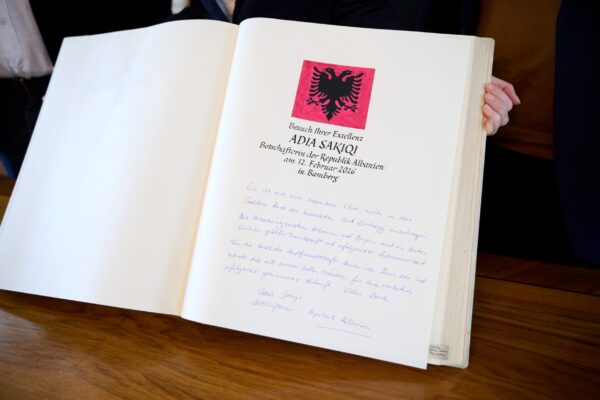 Besuch Ihrer Exzellenz
ADIA SAKIQI
Botschafterin der Republik Albanien
am 12. Februar 2026
in Bamberg
Es ist mir eine besondere Ehre, mich in das
Goldene Buch der Stadt Bamberg einzutragen
Die Beziehungen zwischen Albanien und Bayern sind ein starkes
Zeichen gelebter Freundschaft und erfolgreicher Zusammenarbeit
Für die herzliche Gastfreundschaft danke ich Ihnen sehr und
verbinde dies mit meinen besten Wünschen für eine weiterhin
erfolgreiche gemeinsame Zukunft. Vielen Dank
Adia Sakiqi
Botschafterin - Republik Albanien